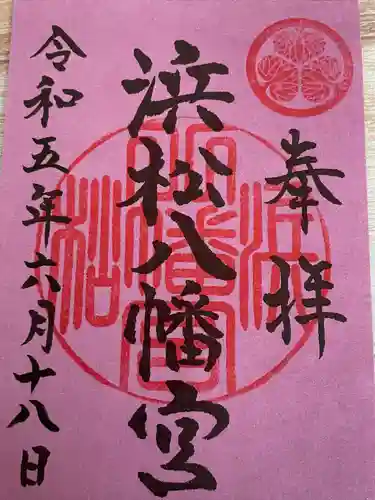 奉拝
浜松八幡宮
令和五年六月十八日